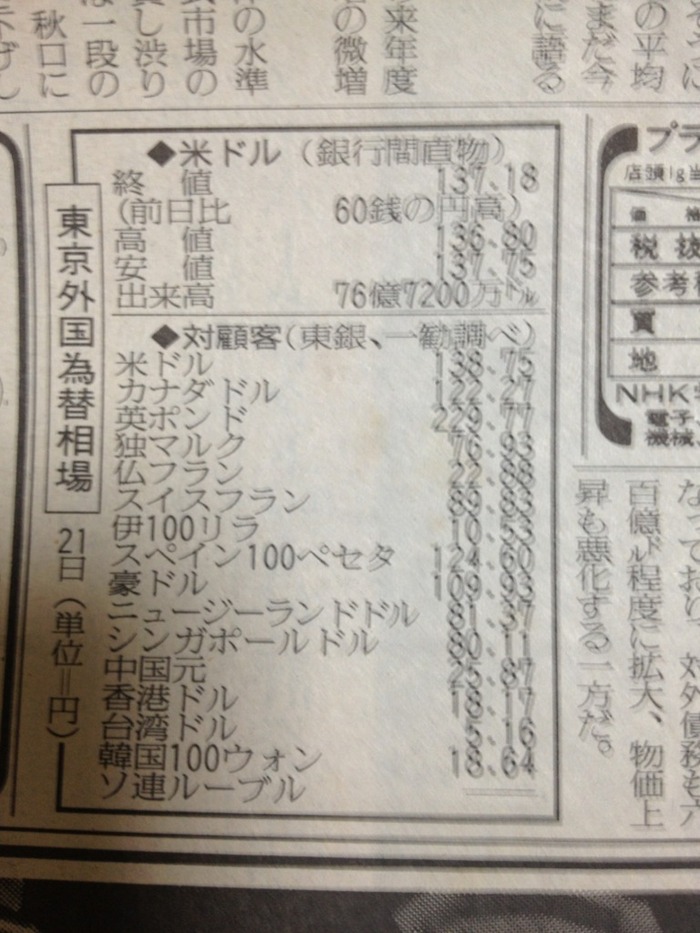 来年度
の微増
に語る
まだ今
の平均
の水準
市場の
し渋り
一段の
秋口に
東京外国為替相場
21日（単位＝円）
◆米ドル（銀行間直物）
終値 137.18
（前日比 60銭の円高）
高値 136.80
安値 137.75
出来高 76億7200万ドル
◆対顧客（東銀、一勧調べ）
米ドル 138.75
カナダドル 122.27
英ポンド 229.77
独マルク 76.93
仏フラン 22.88
スイスフラン 89.83
伊100リラ 10.53
スペイン100ペセタ 124.60
豪ドル 109.93
ニュージーランドドル 81.37
シンガポールドル 80.11
中国元 25.87
香港ドル 18.17
台湾ドル 5.16
韓国100ウォン 18.64
ソ連ルーブル ――
プラ
店頭1g当
税抜
参考
買
地
NHK
電子、
機械、
なっており、対外債務も六
百億ドル程度に拡大、物価上
昇も悪化する一方だ。